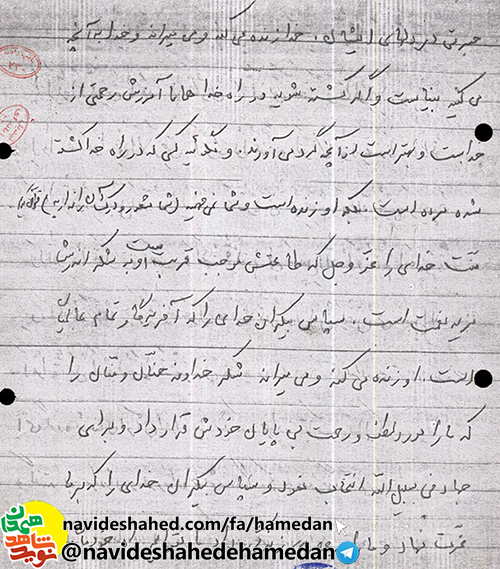 حسرتی در دلهای ایشان، خدا زنده می کند و می میراند و خدا به آنچه
می کنید بیناست و اگر کشته شوید در راه خدا همانا آمرزش رحمتی از
خداست و بهتر است از آنچه گرد می آورند. و نگوئید کسی که در راه خدا کشته
شده مرده است بلکه او زنده است و شما نمی فهمید (شما شعور و درک آن را ندارید)
منت خدای را عز و جل که طاعتش موجب قربت است و به شکر اندرش
مزید نعمت است. سپاس بیکران خدای را که آفریدگار تمام عالم
است. او زنده می کند و می میراند شکر خداوند حنّان و منّان را
که ما را مورد لطف و رحمت بی پایان خودش قرار داد و برای
جهاد فی سبیل الله انتخاب نمود و سپاس بیکران خدای را که بر ما
منت نهاد و ما
نوید شاهد همدان
navideshahed.com/fa/hamedan
@navideshahedehamedan